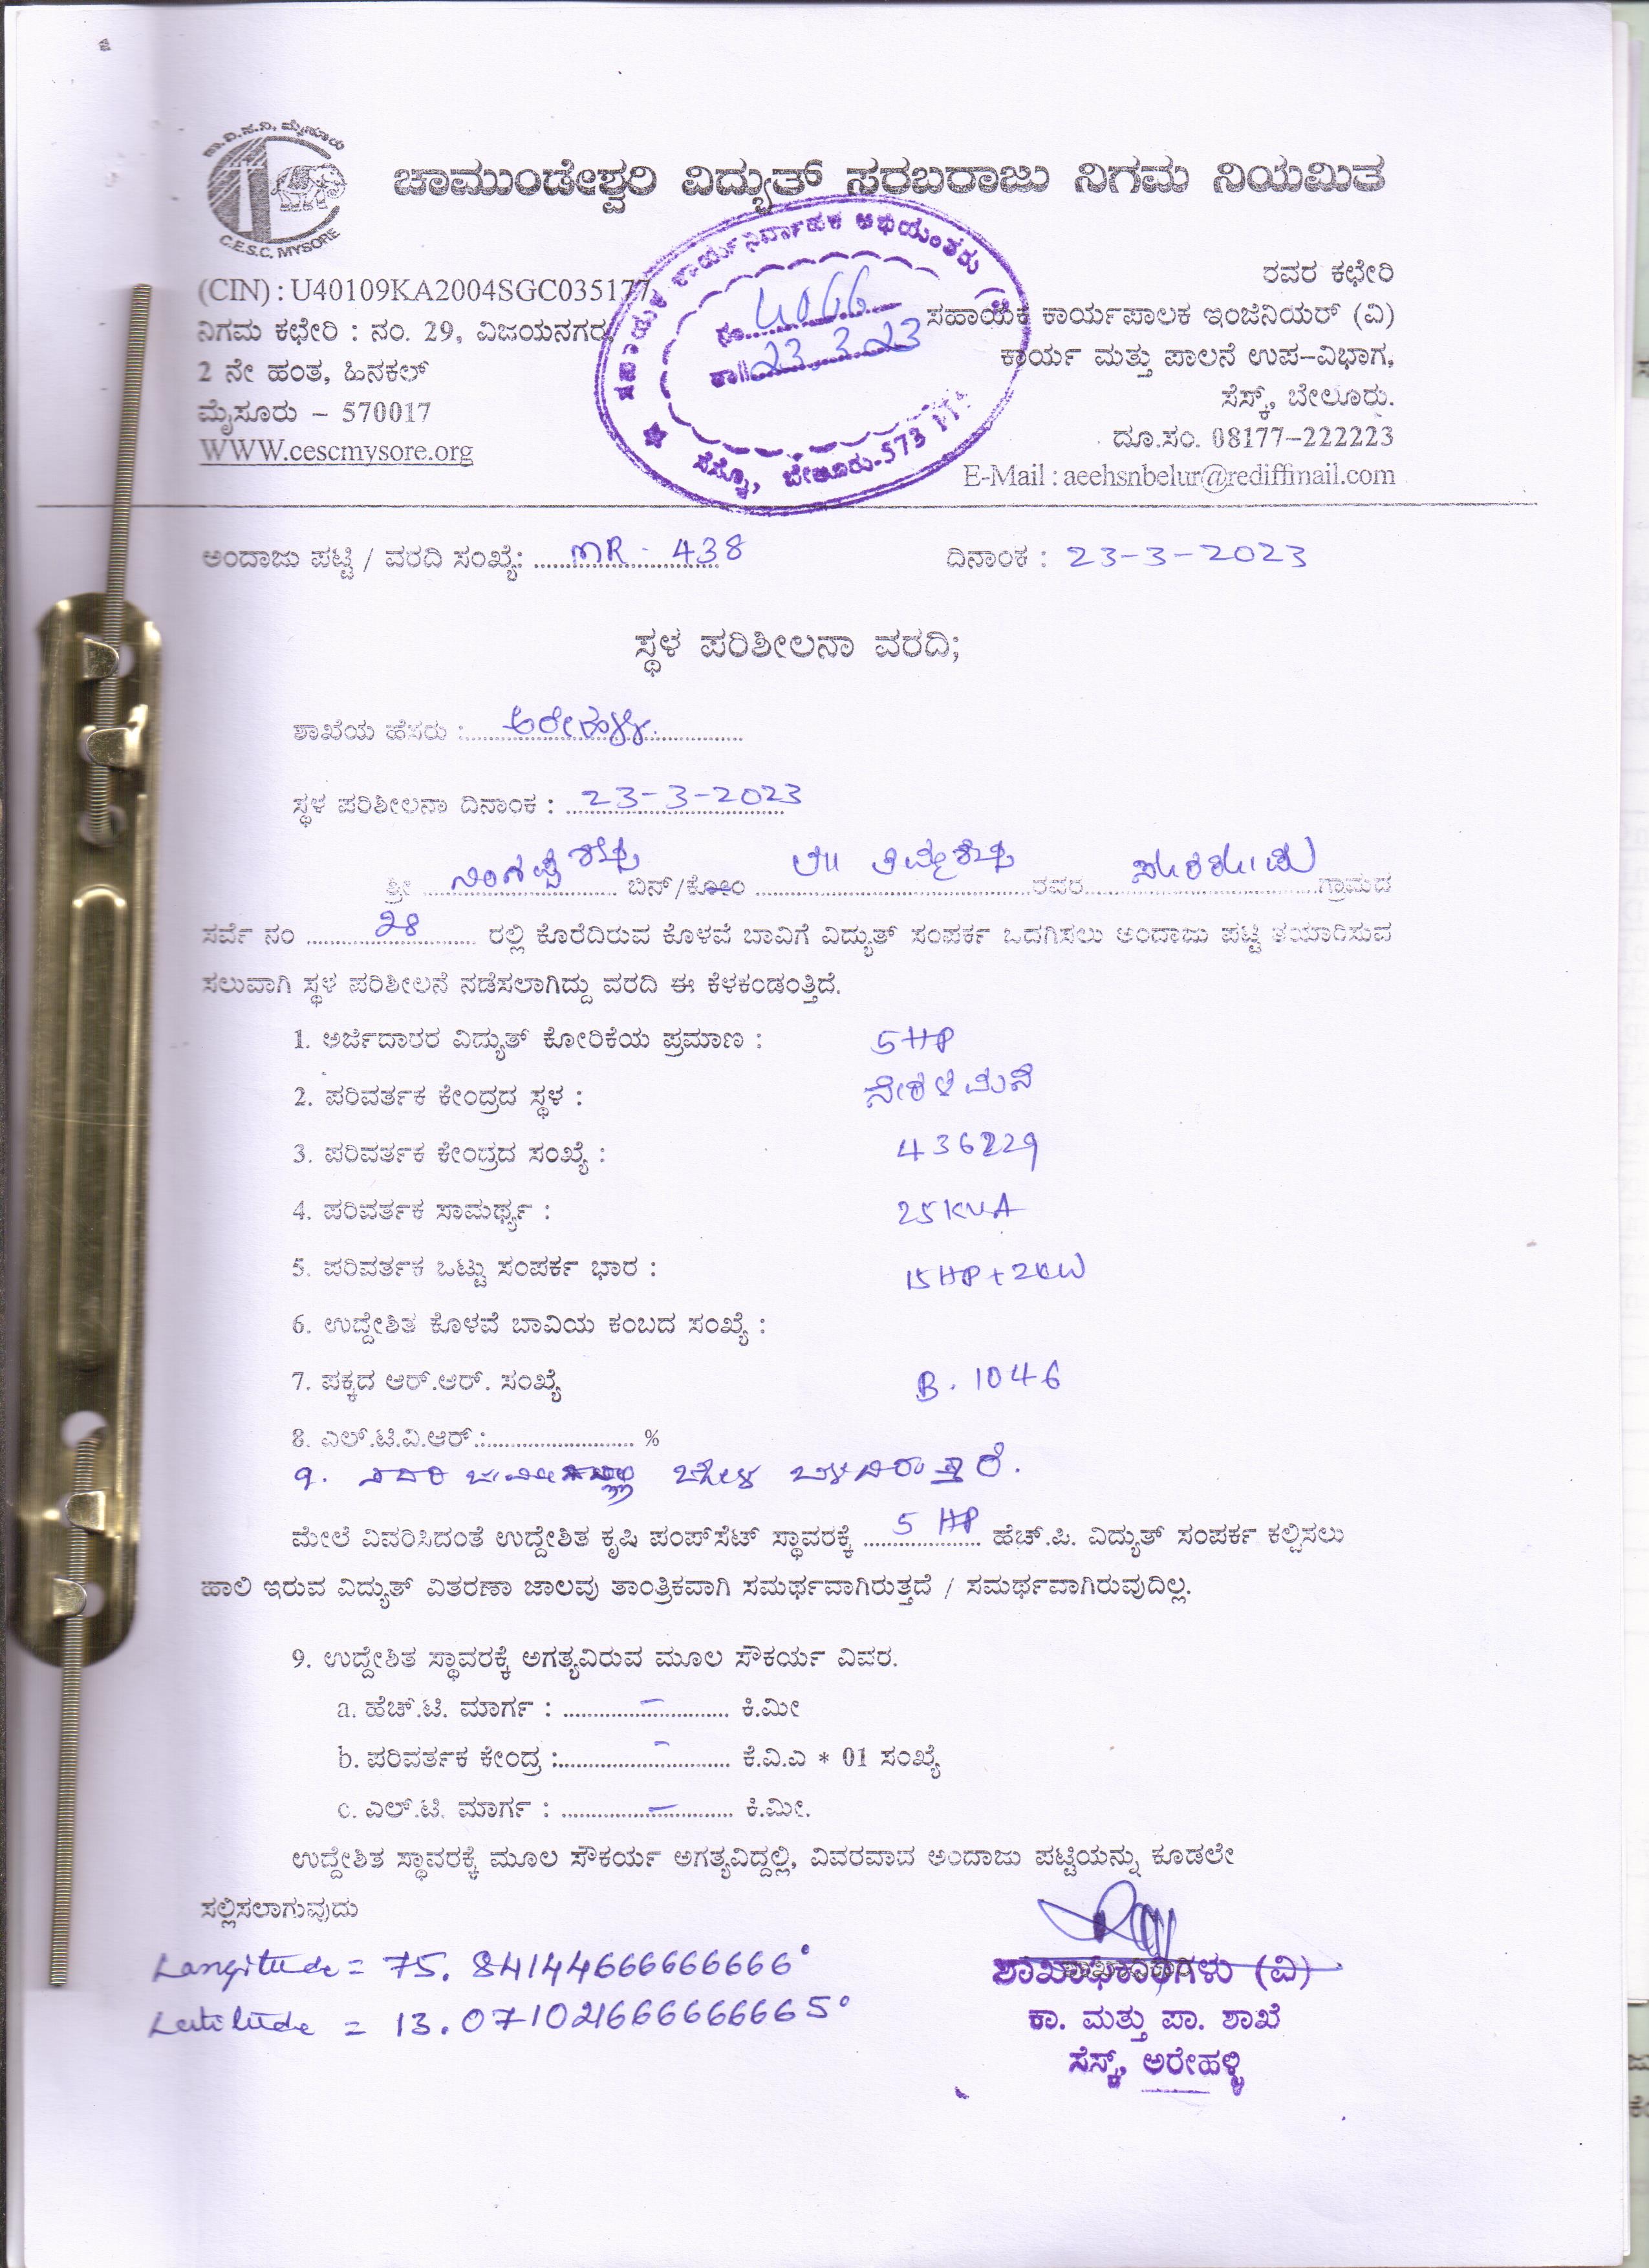 ಚಾ.ವಿ.ಸ.ನಿ, ಮೈಸೂರು
C.E.S.C. MYSORE
ಚಾಮುಂಡೇಶ್ವರಿ ವಿದ್ಯುತ್ ಸರಬರಾಜು ನಿಗಮ ನಿಯಮಿತ
(CIN) : U40109KA2004SGC035177
ನಿಗಮ ಕಛೇರಿ : ನಂ. 29, ವಿಜಯನಗರ
2 ನೇ ಹಂತ, ಹಿನಕಲ್
ಮೈಸೂರು – 570017
WWW.cescmysore.org
ಸಹಾಯಕ ಕಾರ್ಯನಿರ್ವಾಹಕ ಅಭಿಯಂತರು
ನಂ. 4066
ತಾ|| 23.3.23
ಸೆಸ್ಕಾಂ, ಬೇಲೂರು-573
ರವರ ಕಛೇರಿ
ಸಹಾಯಕ ಕಾರ್ಯಪಾಲಕ ಇಂಜಿನಿಯರ್ (ವಿ)
ಕಾರ್ಯ ಮತ್ತು ಪಾಲನೆ ಉಪ-ವಿಭಾಗ,
ಸೆಸ್ಕ್, ಬೇಲೂರು.
ದೂ.ಸಂ. 08177-222223
E-Mail : aeehsnbelur@rediffmail.com
ಅಂದಾಜು ಪಟ್ಟಿ / ವರದಿ ಸಂಖ್ಯೆ: MR - 438 ದಿನಾಂಕ : 23-3-2023
ಸ್ಥಳ ಪರಿಶೀಲನಾ ವರದಿ;
ಶಾಖೆಯ ಹೆಸರು : ಅರೇಹಳ್ಳಿ
ಸ್ಥಳ ಪರಿಶೀಲನಾ ದಿನಾಂಕ : 23-3-2023
ಶ್ರೀ ನಿಂಗಪ್ಪಶೆಟ್ಟಿ ಬಿನ್/ಕೋಂ ರವರ ಗ್ರಾಮದ
ಸರ್ವೆ ನಂ 28 ರಲ್ಲಿ ಕೊರೆದಿರುವ ಕೊಳವೆ ಬಾವಿಗೆ ವಿದ್ಯುತ್ ಸಂಪರ್ಕ ಒದಗಿಸಲು ಅಂದಾಜು ಪಟ್ಟಿ ತಯಾರಿಸುವ
ಸಲುವಾಗಿ ಸ್ಥಳ ಪರಿಶೀಲನೆ ನಡೆಸಲಾಗಿದ್ದು ವರದಿ ಈ ಕೆಳಕಂಡಂತ್ತಿದೆ.
1. ಅರ್ಜಿದಾರರ ವಿದ್ಯುತ್ ಕೋರಿಕೆಯ ಪ್ರಮಾಣ : 5 HP
2. ಪರಿವರ್ತಕ ಕೇಂದ್ರದ ಸ್ಥಳ :
3. ಪರಿವರ್ತಕ ಕೇಂದ್ರದ ಸಂಖ್ಯೆ : 436229
4. ಪರಿವರ್ತಕ ಸಾಮರ್ಥ್ಯ : 25 KVA
5. ಪರಿವರ್ತಕ ಒಟ್ಟು ಸಂಪರ್ಕ ಭಾರ : 15 HP + 2KW
6. ಉದ್ದೇಶಿತ ಕೊಳವೆ ಬಾವಿಯ ಕಂಬದ ಸಂಖ್ಯೆ :
7. ಪಕ್ಕದ ಆರ್.ಆರ್. ಸಂಖ್ಯೆ B. 1046
8. ಎಲ್.ಟಿ.ವಿ.ಆರ್.: %
9. ಸದರಿ
ಮೇಲೆ ವಿವರಿಸಿದಂತೆ ಉದ್ದೇಶಿತ ಕೃಷಿ ಪಂಪ್‌ಸೆಟ್ ಸ್ಥಾವರಕ್ಕೆ 5 HP ಹೆಚ್.ಪಿ. ವಿದ್ಯುತ್ ಸಂಪರ್ಕ ಕಲ್ಪಿಸಲು
ಹಾಲಿ ಇರುವ ವಿದ್ಯುತ್ ವಿತರಣಾ ಜಾಲವು ತಾಂತ್ರಿಕವಾಗಿ ಸಮರ್ಥವಾಗಿರುತ್ತದೆ / ಸಮರ್ಥವಾಗಿರುವುದಿಲ್ಲ.
9. ಉದ್ದೇಶಿತ ಸ್ಥಾವರಕ್ಕೆ ಅಗತ್ಯವಿರುವ ಮೂಲ ಸೌಕರ್ಯ ವಿವರ.
a. ಹೆಚ್.ಟಿ. ಮಾರ್ಗ : – ಕಿ.ಮೀ
b. ಪರಿವರ್ತಕ ಕೇಂದ್ರ : – ಕೆ.ವಿ.ಎ * 01 ಸಂಖ್ಯೆ
c. ಎಲ್.ಟಿ. ಮಾರ್ಗ : – ಕಿ.ಮೀ.
ಉದ್ದೇಶಿತ ಸ್ಥಾವರಕ್ಕೆ ಮೂಲ ಸೌಕರ್ಯ ಅಗತ್ಯವಿದ್ದಲ್ಲಿ, ವಿವರವಾದ ಅಂದಾಜು ಪಟ್ಟಿಯನ್ನು ಕೂಡಲೇ
ಸಲ್ಲಿಸಲಾಗುವುದು
Longitude = 75. 84144666666666°
Latitude = 13.071021666666665°
ಶಾಖಾಧಿಕಾರಿಗಳು (ವಿ)
ಕಾ. ಮತ್ತು ಪಾ. ಶಾಖೆ
ಸೆಸ್ಕ್, ಅರೇಹಳ್ಳಿ